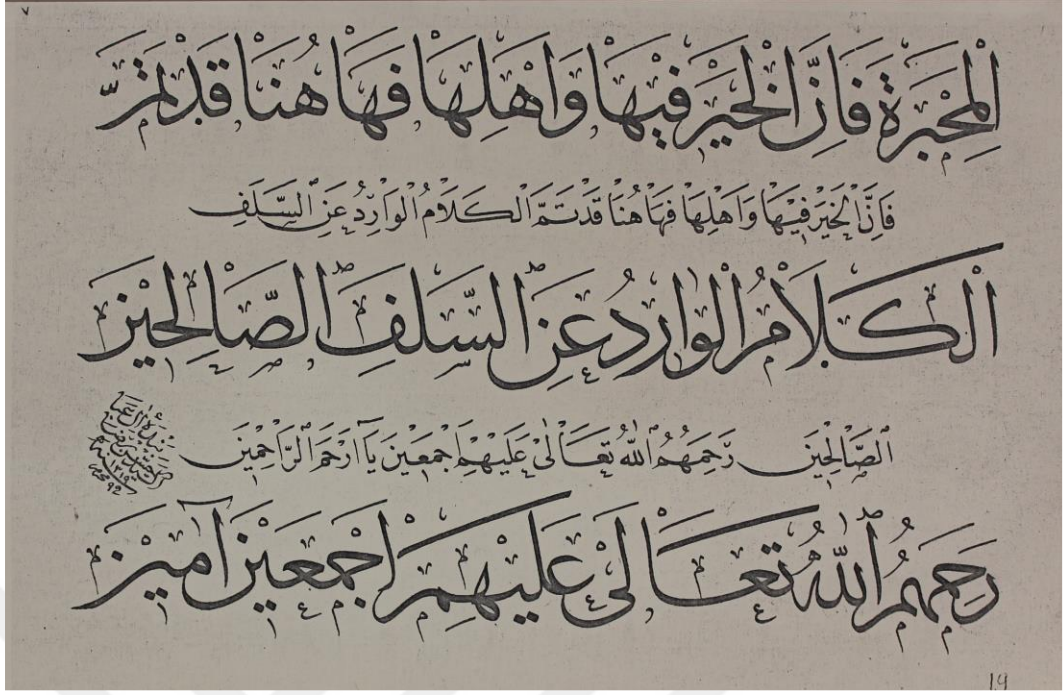 ٧
الْمِحْبَرَةِ فَاِنَّ الْخَيْرَ فِيْهَا وَاَهْلِهَا فَهَا هُنَا قَدْ تَمَّ
فَاِنَّ الْخَيْرَ فِيْهَا وَاَهْلِهَا فَهَا هُنَا قَدْ تَمَّ الْكَلَامُ الْوَارِدُ عَنِ السَّلَفِ
اَلْكَلَامُ الْوَارِدُ عَنِ السَّلَفِ الصَّالِحِيْنَ
الصَّالِحِيْنَ رَحِمَهُمُ اللّٰهُ تَعَالٰى عَلَيْهِمْ اَجْمَعِيْنَ يَا اَرْحَمَ الرَّاحِمِيْنَ
رَحِمَهُمُ اللّٰهُ تَعَالٰى عَلَيْهِمْ اَجْمَعِيْنَ آمِيْنَ
14